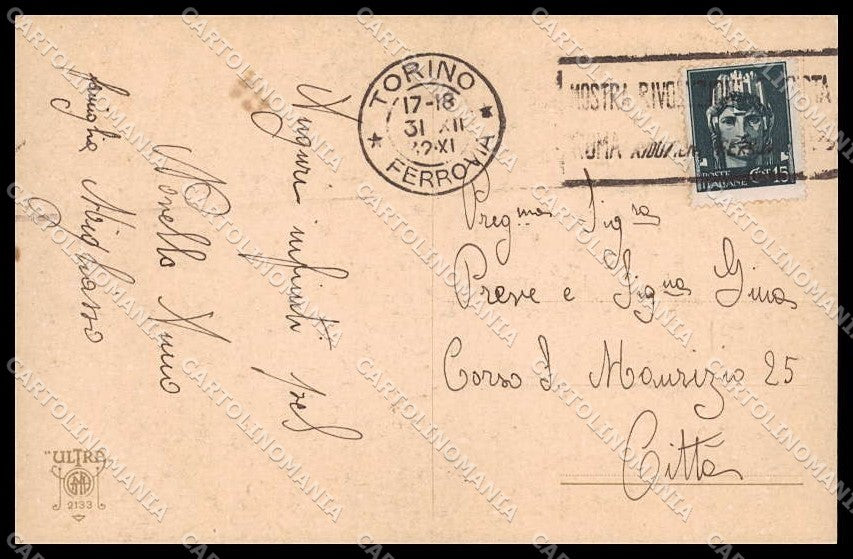 Auguri infiniti pel
Novello Anno
famiglia
"ULTRA"
2133
TORINO
17-18
31 XII
32·XI
FERROVIA
MOSTRA RIVOLUZIONE
ROMA
POSTE
ITALIANE
CENT 15
Preg.ma Sig.ra
Preve e Sig.na Gina
Corso S. Maurizio 25
Città
CARTOLINOMANIA